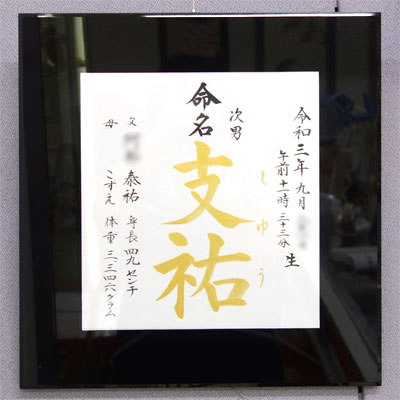 令和三年九月
午前十一時三十三分
生
しゅう
次男
命名
支祐
父
泰祐
母
こずえ
身長四九センチ
体重三、三四六グラム